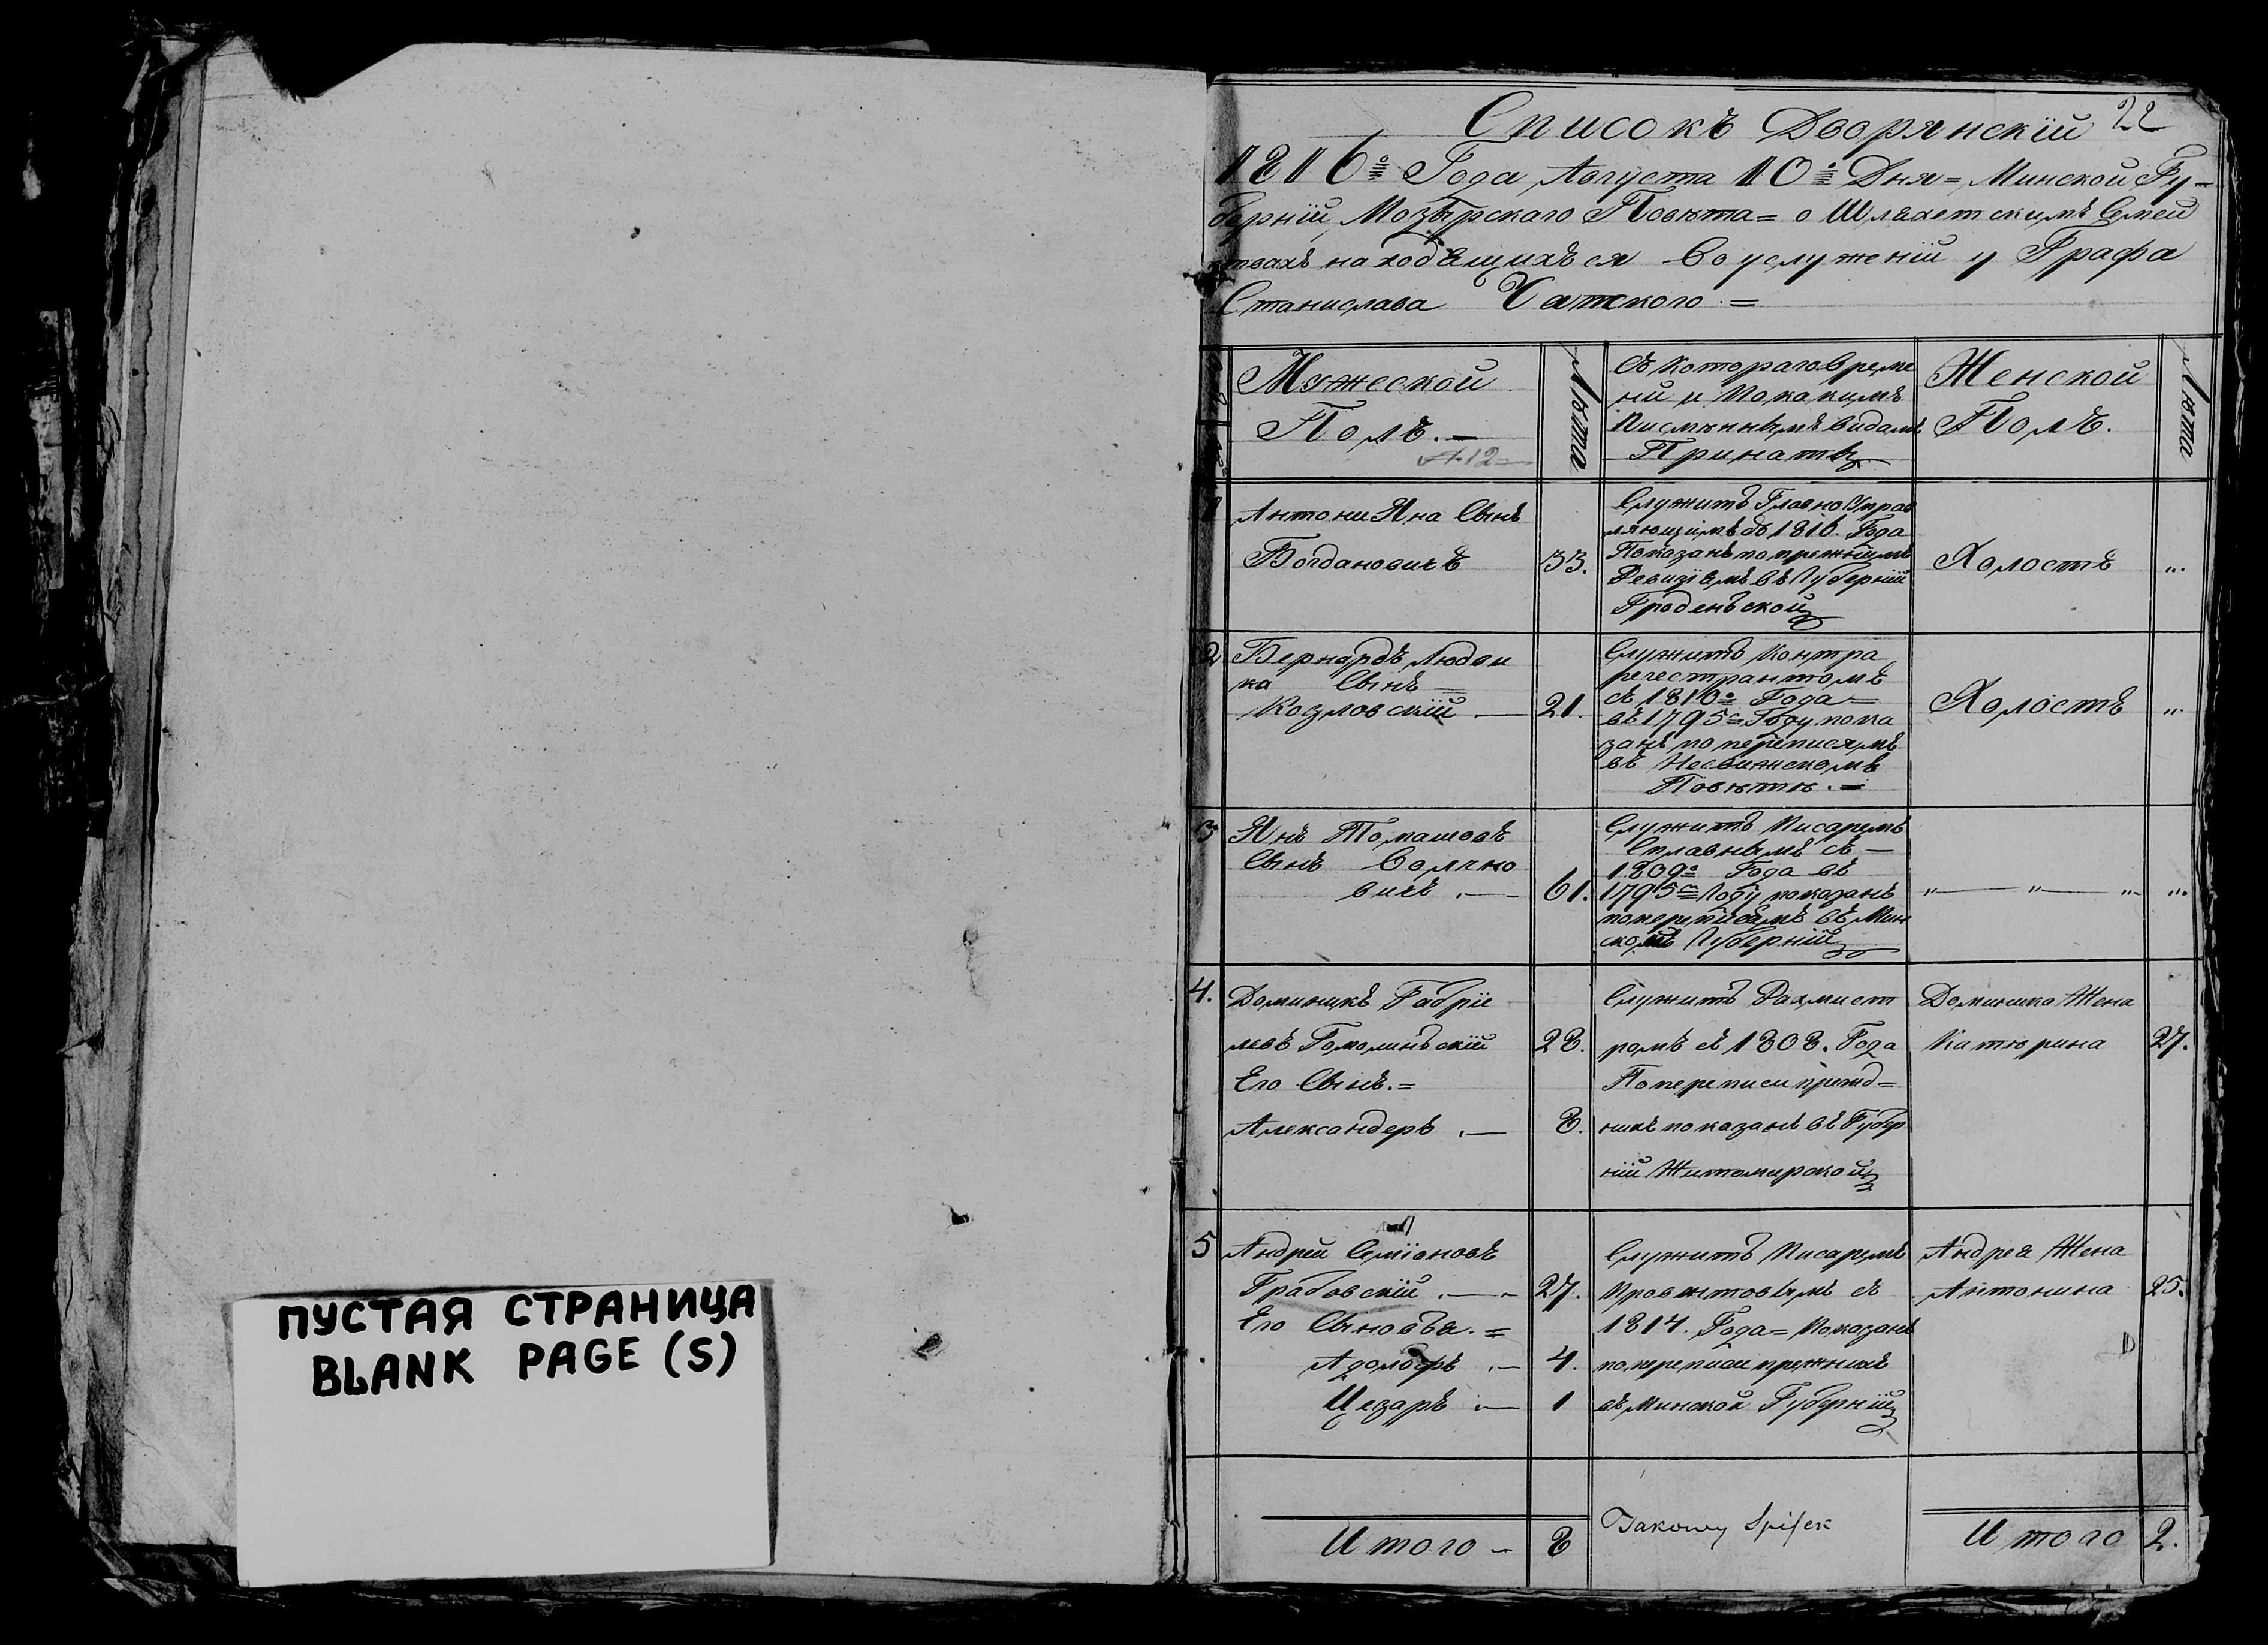 ПУСТАЯ СТРАНИЦА
BLANK PAGE (S)
22
Списокъ Дворянскій
1816го Года Августа 10го Дня = Минской Гу-
берній Мозырскаго Повѣта = о Шляхетскимъ Семей
ствахъ находящихъся Во услуженій у Графа
Станислава Чатского =
Мужеской
Полъ.
Лѣта
Съ Котораго Време
ни и По какимъ
Писмѣннымъ Видамъ
Принаты
Женской
Полъ.
Лѣта
1
Антони Яна Сынъ
Богдановичъ
33.
Служитъ Главно Управ
ляющимъ съ 1816. Года
Показанъ по прежнимъ
Ревизіямъ въ Губерній
Гроденъской
Холостъ
2
Бернардъ Людви
ка Сынъ
Козловскій
21.
Служитъ Контра
регестрантомъ
съ 1810го Года
въ 1795м Году пока
занъ по переписямъ
въ Несвижскомъ
Повѣтѣ. =
Холостъ
3
Янъ Томашовъ
Сынъ Волчко
вичъ
61.
Служитъ Писаремъ
Сплавнымъ съ
1809го Года въ
1795м Году показанъ
поперѣписямъ въ Мин
ской Губерній
4.
Доминикъ Габріе
левъ Гомолинъскій
28.
Его Сынъ. =
Александеръ
8.
Служитъ Рахмист
ромъ съ 1808. Года
По переписи прежд=
нихъ показанъ въ Губер
ній Житомирской
Доминика Жена
Катѣрина
27.
5
Андрей Семіоновъ
Грабовскій
27.
Его Сыновья. =
Адольфъ
4.
Цезаръ
1
Служитъ Писаремъ
Провѣнтовымъ съ
1814. Года = Показанъ
по переписи прежнихъ
въ Минской Губерній
Андрея Жена
Антонина
25.
Итого
8
Takowy Spisek
Итого
2.